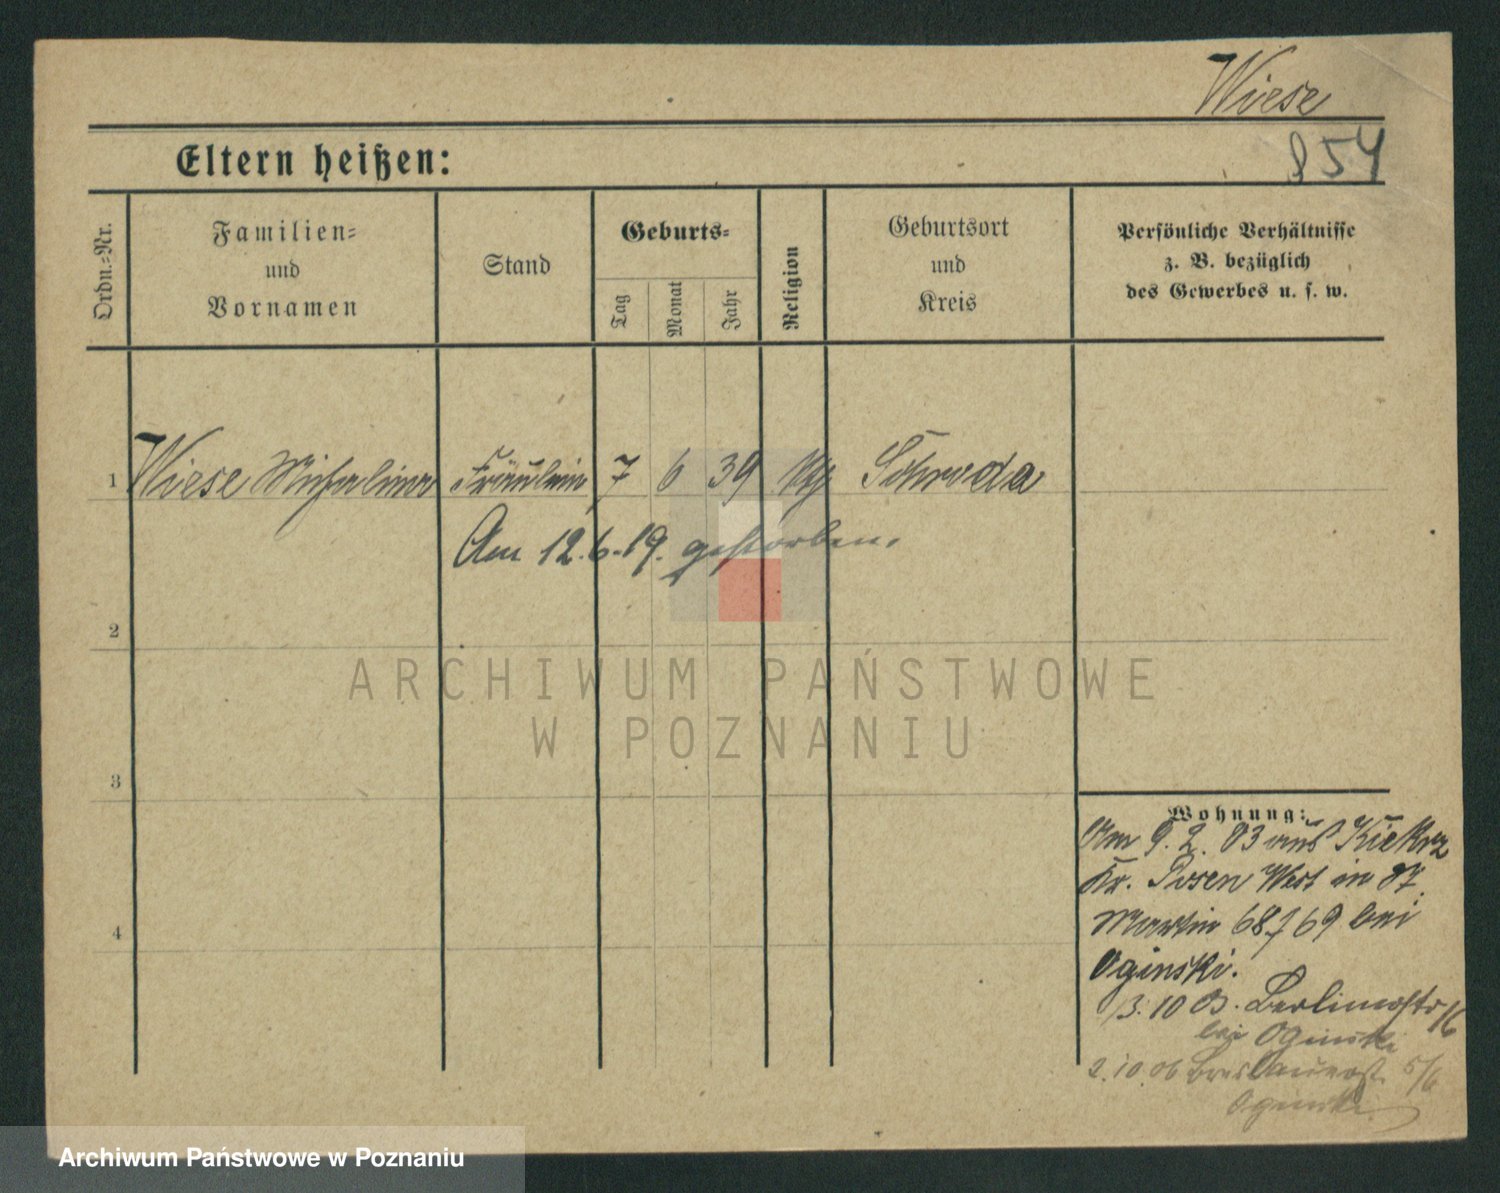 Wiese
Eltern heißen:
854
Ordn.-Nr.
Familien-
und
Vornamen
Stand
Geburts-
Tag
Monat
Jahr
Religion
Geburtsort
und
Kreis
Persönliche Verhältnisse
z. B. bezüglich
des Gewerbes u. s. w.
1 Wiese Michalina Fräulein 7 6 39 Schroda
Am 12.6.19. gestorben.
2
ARCHIWUM PAŃSTWOWE
W POZNANIU
3
Wohnung:
Am 9.2.03 aus Kiekrz
Kr. Posen West in
4
Martin 68/69 bei
Oginski.
3.10 03. Berlinerstr 16
bei Oginski
2.10.06 Breslauerst. 5/6
Oginski
Archiwum Państwowe w Poznaniu